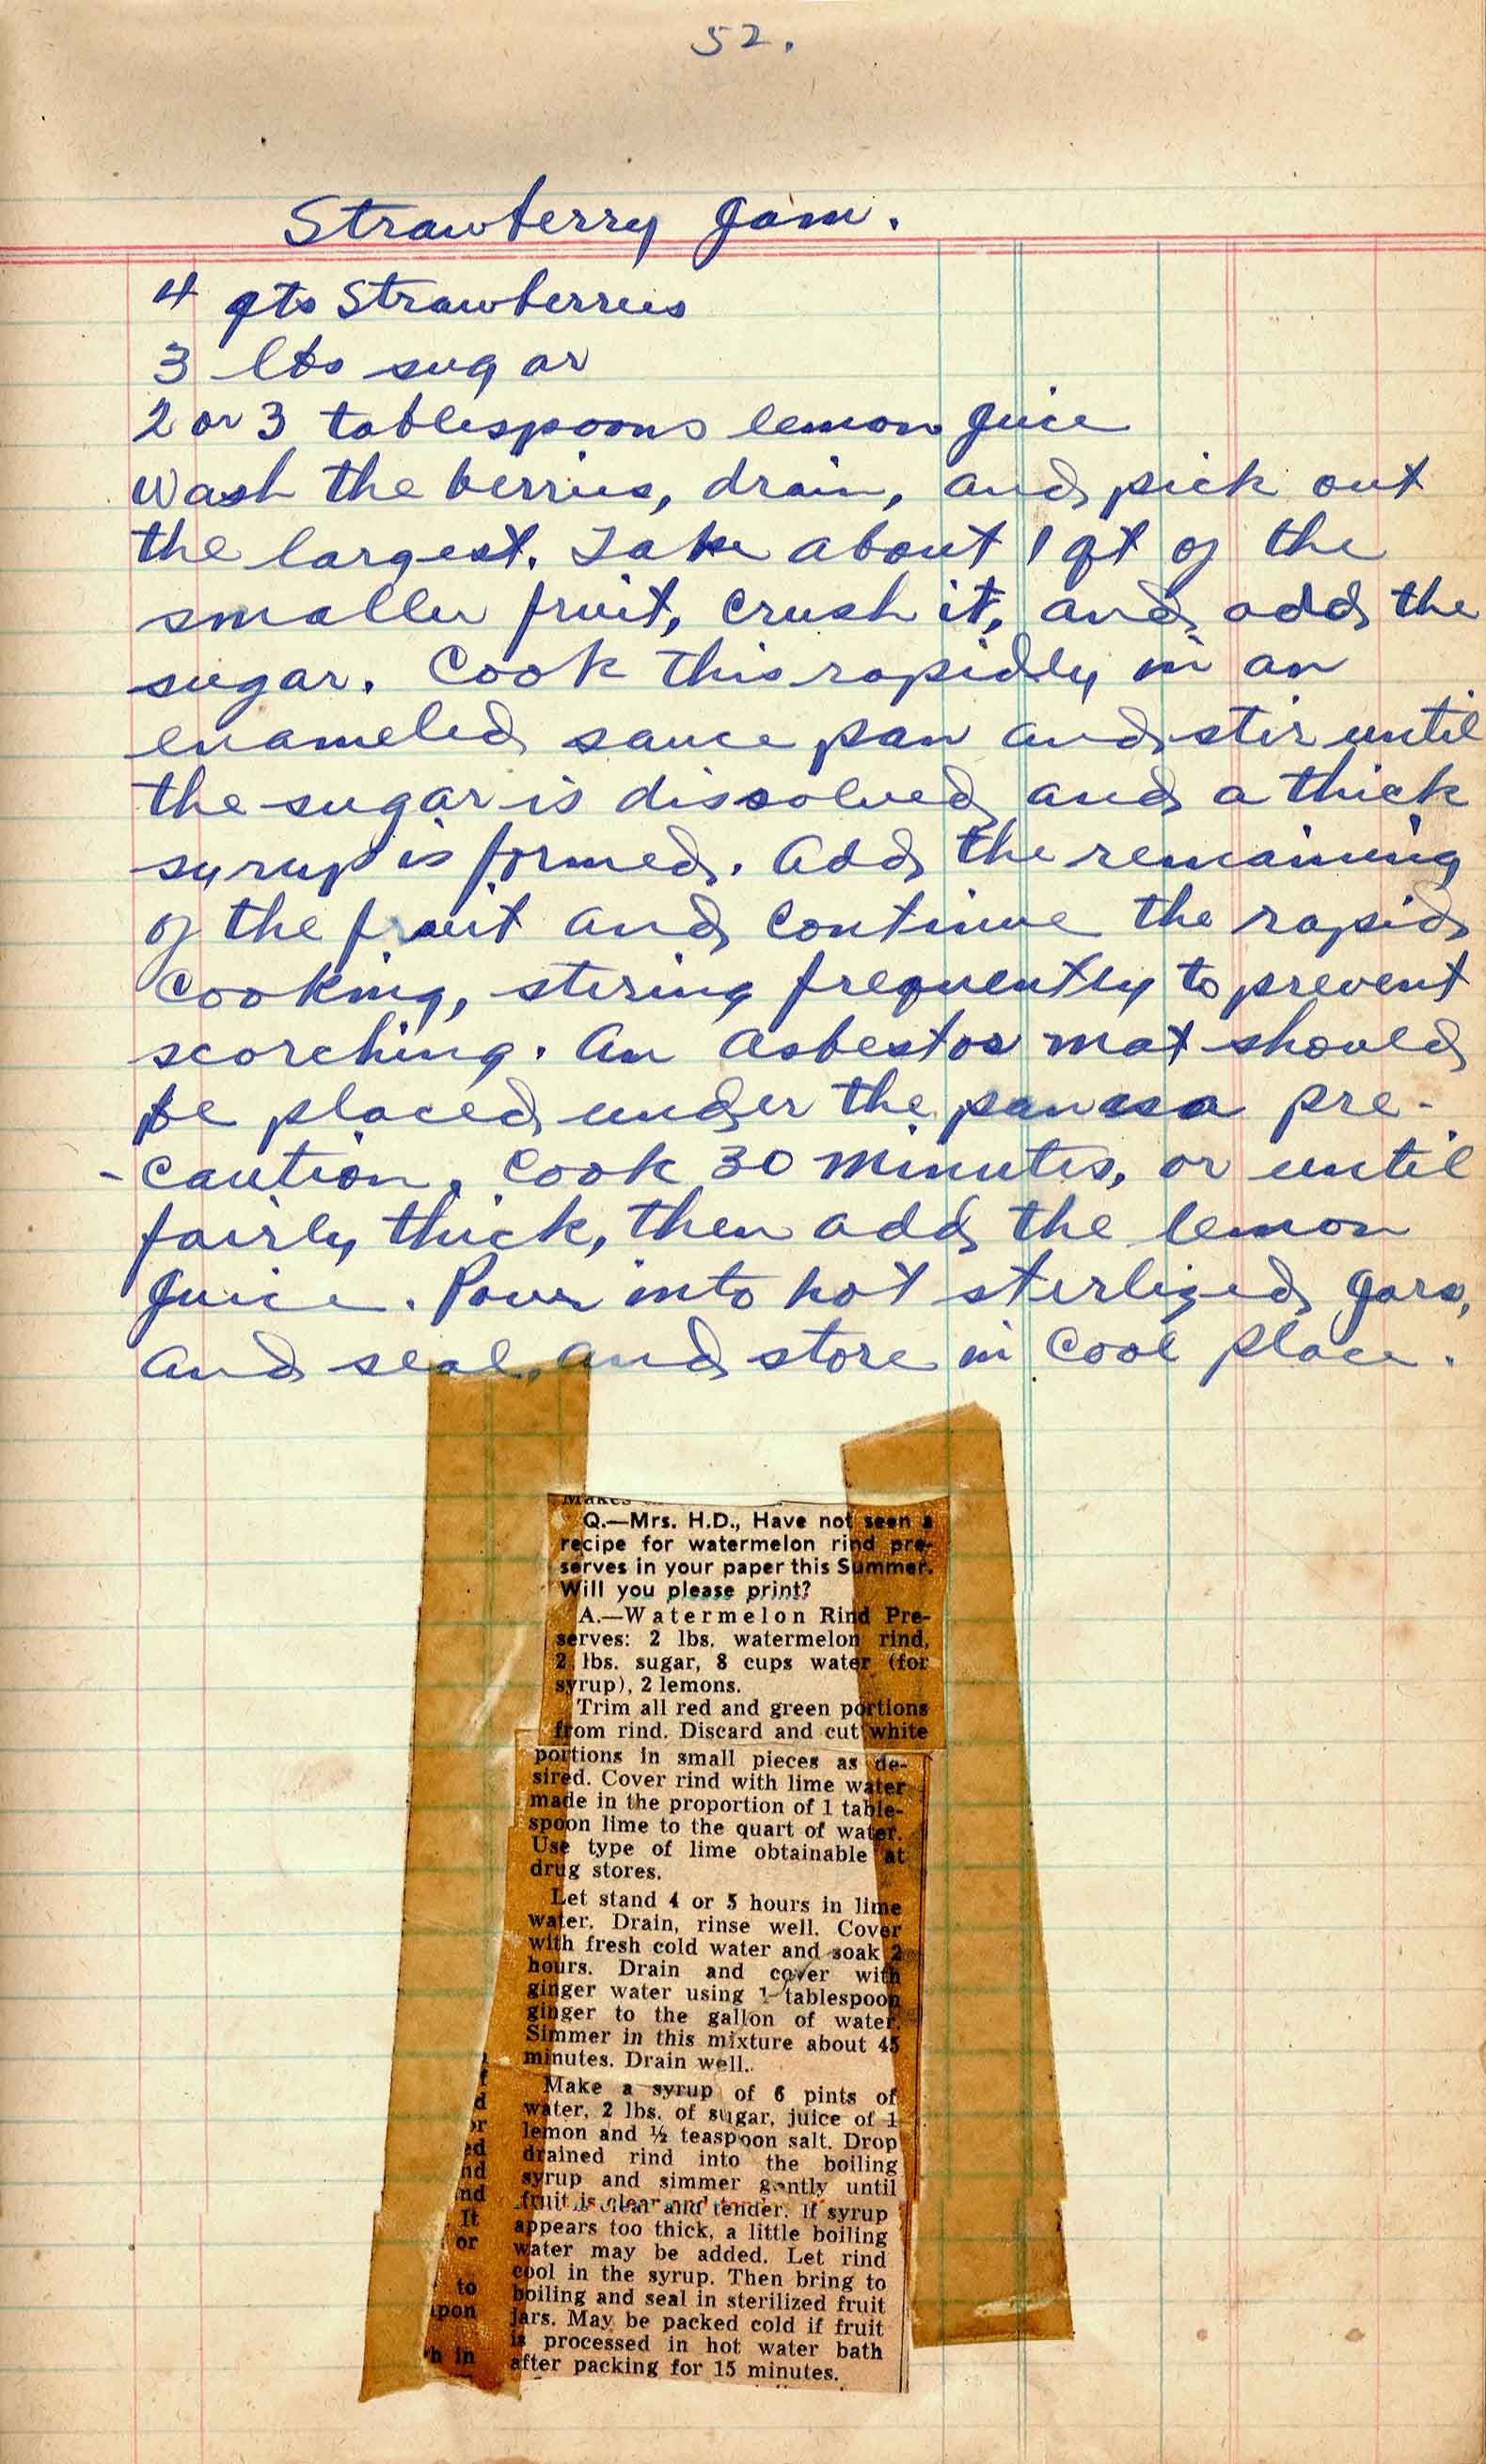 52.
Strawberry Jam.
4 qts Strawberries
3 lbs sugar
2 or 3 tablespoons lemon juice
Wash the berries, drain, and pick out
the largest. Take about 1 qt of the
smaller fruit, crush it, and add the
sugar. Cook this rapidly in an
enameled sauce pan and stir until
the sugar is dissolved and a thick
syrup is formed. Add the remaining
of the fruit and continue the rapid
cooking, stiring frequently to prevent
scorching. An asbestos mat should
be placed under the pan as a pre-
-caution. Cook 30 minutes, or until
fairly thick, then add the lemon
juice. Pour into hot sterlized jars,
and seal, and store in cool place.
Makes
Q.—Mrs. H.D., Have not seen a
recipe for watermelon rind pre-
serves in your paper this Summer.
Will you please print?
A.—Watermelon Rind Pre-
serves: 2 lbs. watermelon rind,
2 lbs. sugar, 8 cups water (for
syrup), 2 lemons.
Trim all red and green portions
from rind. Discard and cut white
portions in small pieces as de-
sired. Cover rind with lime water
made in the proportion of 1 table-
spoon lime to the quart of water.
Use type of lime obtainable at
drug stores.
Let stand 4 or 5 hours in lime
water. Drain, rinse well. Cover
with fresh cold water and soak 2
hours. Drain and cover with
ginger water using 1 tablespoon
ginger to the gallon of water.
Simmer in this mixture about 45
minutes. Drain well.
Make a syrup of 6 pints of
water, 2 lbs. of sugar, juice of 1
lemon and ½ teaspoon salt. Drop
drained rind into the boiling
syrup and simmer gently until
fruit is clear and tender. If syrup
appears too thick, a little boiling
water may be added. Let rind
cool in the syrup. Then bring to
boiling and seal in sterilized fruit
jars. May be packed cold if fruit
is processed in hot water bath
after packing for 15 minutes.
f
d
or
ed
nd
nd
It
or
to
upon
h in